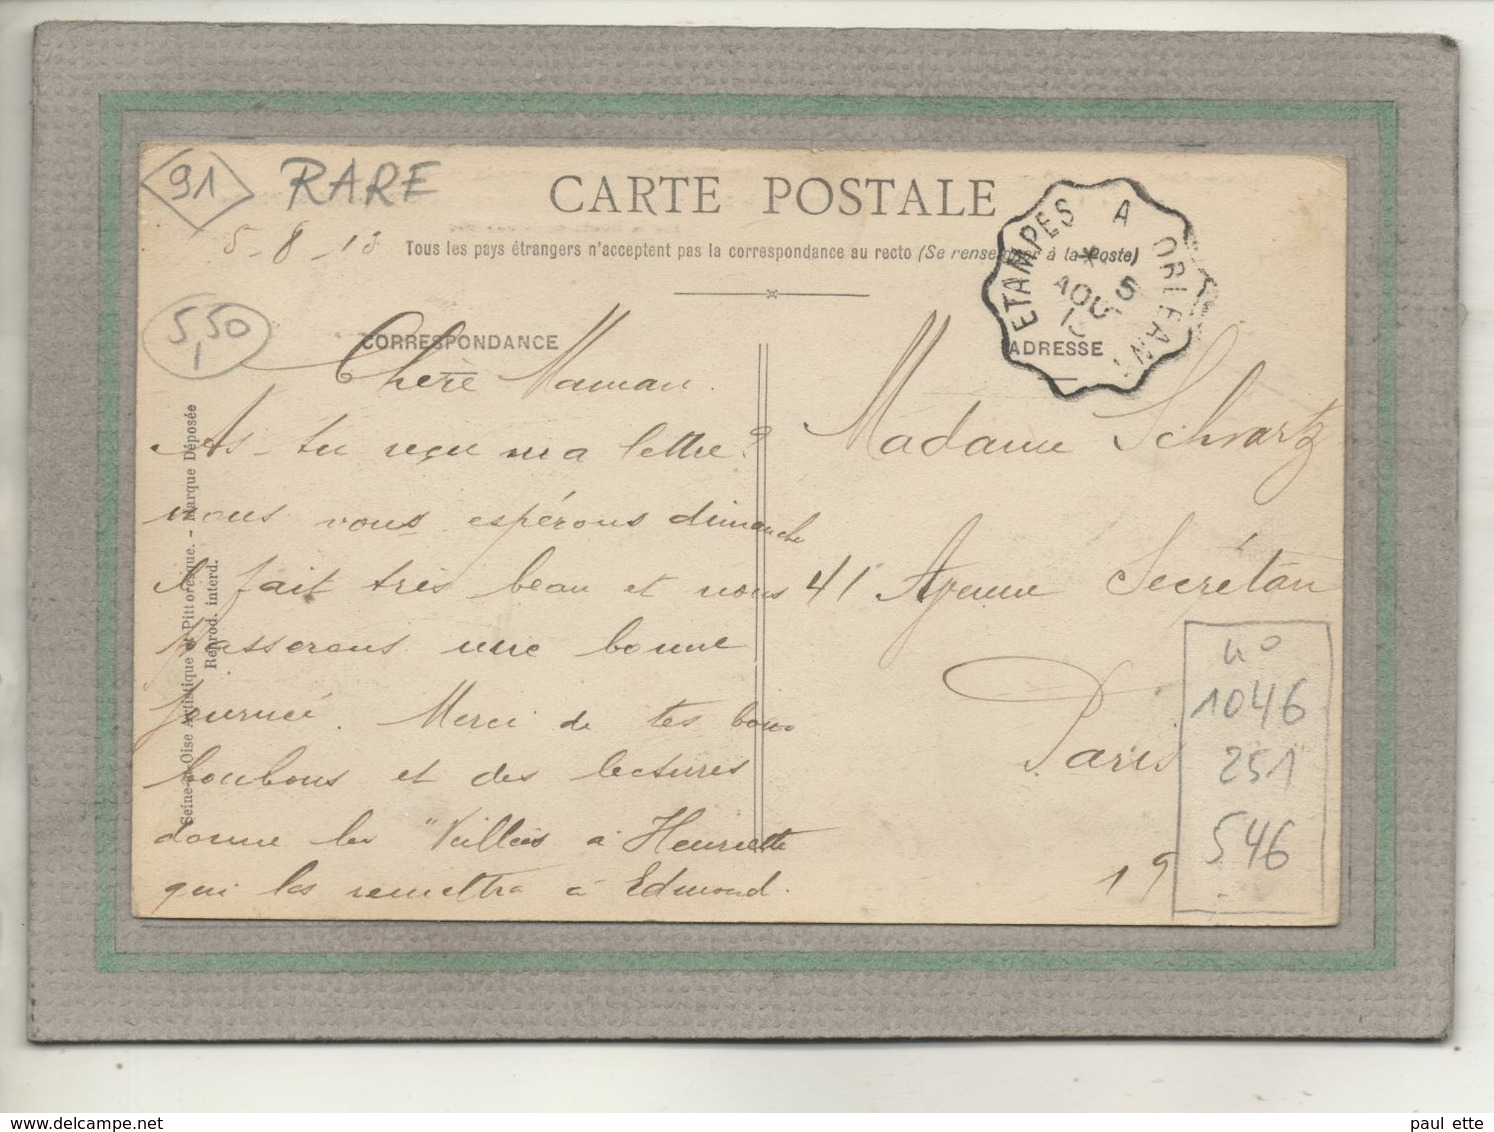 91
RARE
CARTE POSTALE
5-8-13
Tous les pays étrangers n'acceptent pas la correspondance au recto (Se renseigner à la Poste)
ETAMPES A ORLEANS
* 5
AOUT
5,50
CORRESPONDANCE
ADRESSE
Chère Maman.
As-tu reçu ma lettre?
nous vous espérons dimanche
il fait très beau et nous
passerons une bonne
journée. Merci de tes bons
bonbons et des lectures
donne les "Veillées à Henriette
qui les remettra à Edmond.
Madame Schwartz
41 Avenue Secrétan
Paris
19
1046
251
546
Seine-et-Oise Artistique et Pittoresque. - Marque Déposée
Reprod. interd.
www.delcampe.net
paul ette